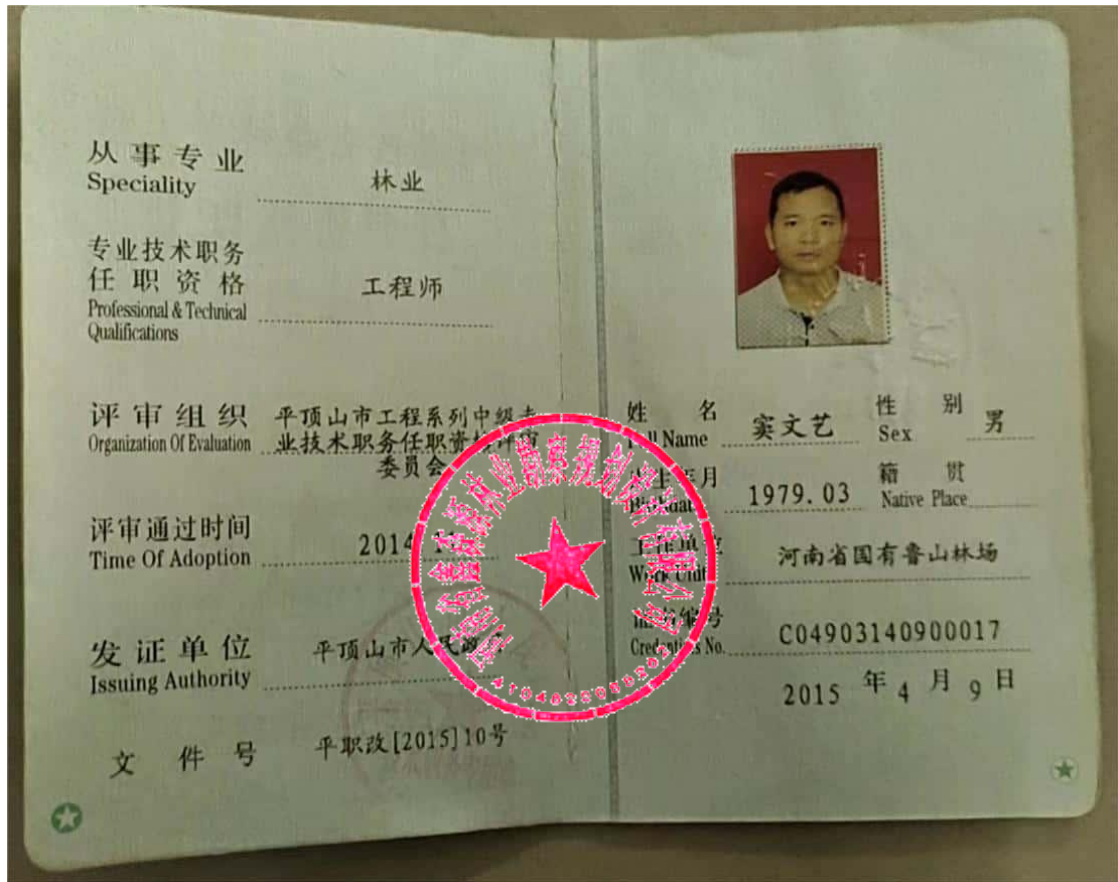 从事专业
Speciality
林业
专业技术职务
任职资格
Professional & Technical
Qualifications
工程师
评审组织
Organization Of Evaluation
平顶山市工程系列中级专
业技术职务任职资格评审
委员会
评审通过时间
Time Of Adoption
2014
发证单位
Issuing Authority
平顶山市人民政府
文件号
平职改[2015]10号
姓名
Full Name
窦文艺
性别
Sex
男
出生年月
Birthdate
1979.03
籍贯
Native Place
工作单位
Work Unit
河南省国有鲁山林场
证书编号
Credentials No.
C04903140900017
2015年4月9日